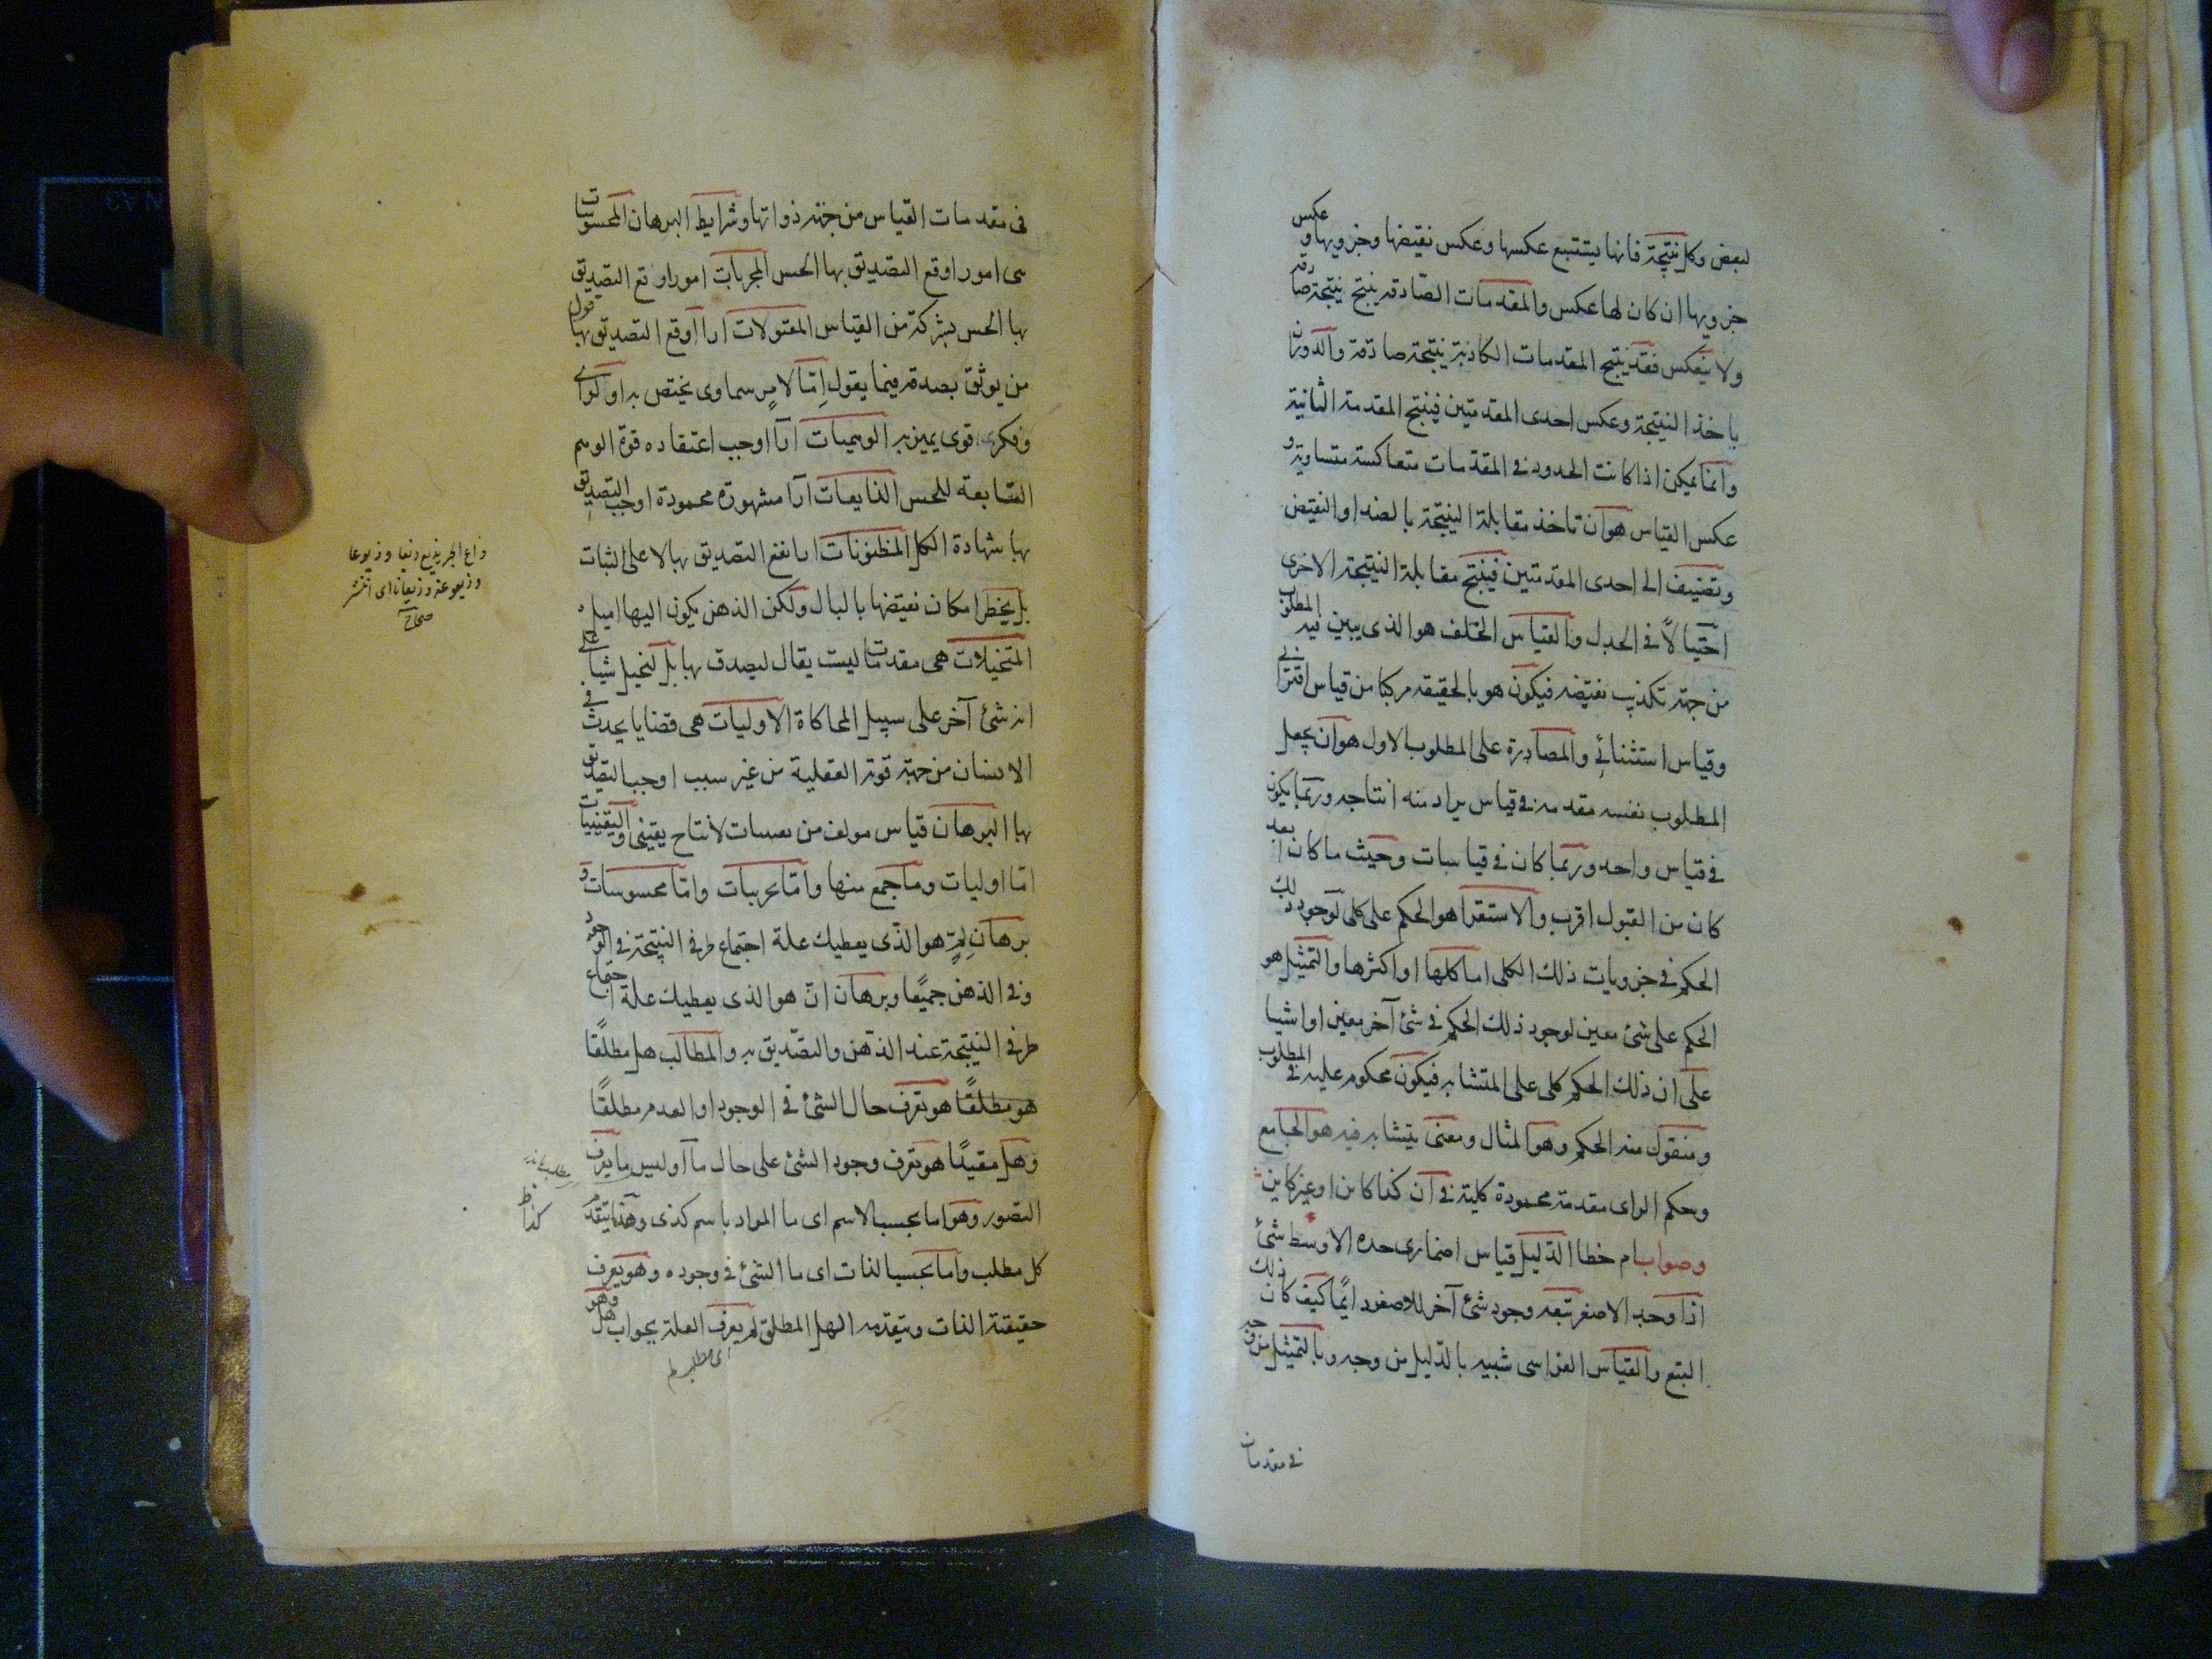 لبعض وكل نتيجة فانها يستتبع عكسها وعكس نقيضها وجزويها وعكس
جزويها ان كان لها عكس والمقدمات الصادقه ينتج نتيجة صادقه
ولا ينعكس فقد ينتج المقدمات الكاذبة نتيجة صادقة والدوران
ياخذ النتيجة وعكس احدى المقدمتين فينتج المقدمة الثانية
وانما يمكن اذا كانت الحدود في المقدمات متعاكسة متساوية و
عكس القياس هو ان تاخذ مقابلة النتيجة بالضد او النقيض
وتضيف الى احدى المقدمتين فينتج مقابلة النتيجة الاخرى
احتيالًا في الجدل والقياس الخلف هو الذى يبين فيه المطلوب
من جهة تكذيب نقيضه فيكون هو بالحقيقه مركبا من قياس اقترانى
وقياس استثنائي والمصادرة على المطلوب الاول هو ان يجعل
المطلوب نفسه مقدمه في قياس يراد منه انتاجه وربما يكون
في قياس واحد وربما كان في قياسات وحيث ما كان ابعد
كان من القبول اقرب والاستقرا هو الحكم على كلى لوجود ذلك
الحكم في جزويات ذلك الكلى اما كلها او اكثرها والتمثيل هو
الحكم على شئ معين لوجود ذلك الحكم في شئ آخر معين او اشيا
على ان ذلك الحكم كلى على المتشابه فيكون محكوم عليه في المطلوب
ومنقول منه الحكم وهو المثال ومعنى يتشابه فيه هو الجامع
وحكم الراى مقدمة محمودة كلية في ان كذا كاين او غير كاين
وصواب ام خطا الدليل قياس اضمارى حده الاوسط شئ
اذا وجد الاصغر تبعه وجود شئ آخر للاصغر دايمًا كيف كان ذلك
التبع والقياس الفراسى شبيه بالدليل من وجه وبالتمثيل من وجه
في مقدمات
في مقدمات القياس من جهة ذواتها وشرايط البرهان المحسوسات
هى امور اوقع التصديق بها الحس المجربات امور اوقع التصديق
بها الحس بشركة من القياس المقبولات ارا اوقع التصديق بها قول
من يوثق بصدقه فيما يقول اِمّا لامرٍ سماوى يختص به او لراى
وفكرى قوى يميز به الوهميات آرآ اوجب اعتقاده قوة الوهم
التابعه للحس الذايعات آرآ مشهورة محمودة اوجب التصديق
بها شهادة الكل المظنونات ارا يقع التصديق بها لا على الثبات
بل يخطر امكان نقيضها بالبال ولكن الذهن يكون اليها اميل
المتخيلات هى مقدمات ليست يقال ليصدق بها بل لتخيل شيا على
انه شئ آخر على سبيل المحاكاة الاوليات هى قضايا يحدث في
الانسان من جهة قوته العقلية من غير سبب اوجب التصديق
بها البرهان قياس مولف من يقينيات لانتاج يقينى واليقينيات
امّا اوليات وما جمع منها وامّا تجربيات وامّا محسوسات و
برهان لِمَ هو الذى يعطيك علة اجتماع طرفى النتيجة في الوجود
وفي الذهن جميعًا وبرهان انّ هو الذى يعطيك علة اجتماع
طرفي النتيجة عند الذهن والتصديق به والمطالب هل مطلقًا
هو مطلقًا هو تعرف حال الشئ في الوجود او العدم مطلقًا
وهل مقيدًا هو تعرف وجود الشئ على حال مّا او ليس ما يعرف
التصور وهو اما بحسب الاسم اى ما المراد باسم كذى وهذا يتقدم
كل مطلب واما بحسب الذات اى ما الشئ في وجوده وهو يعرف
حقيقة الذات ويتقدمه الهل المطلق لم يعرف العلة بجواب هل وهو
ذاع الخبر يذيع ذيعا وذيوعا
وذيوعة وذيعانا اى انتشر
صحاح
كذا
اى مطلب لم